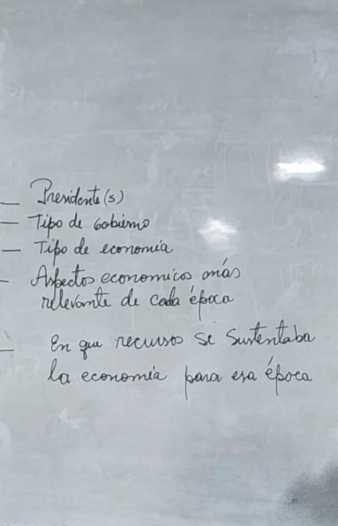 — Presidente(s)
— Tipo de Gobierno
— Tipo de economía
— Aspectos economicos más
relevante de cada época
— En que recursos se sustentaba
la economía para esa época